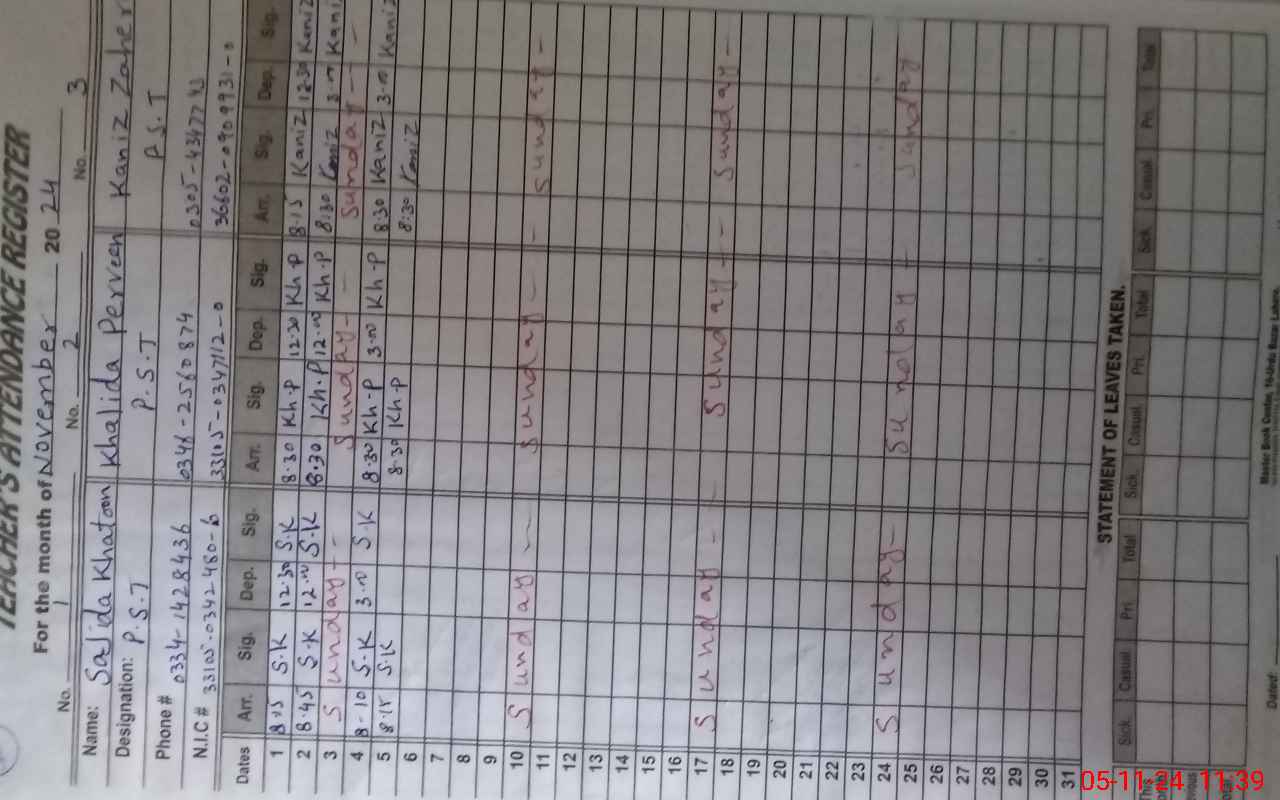 TEACHER'S ATTENDANCE REGISTER
For the month of November 20 24
No. 1 No. 2 No. 3
Name: Sajida Khatoon Khalida Perveen Kaniz Zaher
Designation: P.S.T P.S.T P.S.T
Phone # 0334-1428436 0346-2560874 0305-4347743
N.I.C # 33105-0342480-6 33105-0347112-0 36602-0909931-0
Dates Arr. Sig. Dep. Sig. Arr. Sig. Dep. Sig. Arr. Sig. Dep. Sig.
1 8.15 S.K 12.30 S.K 8.30 Kh.P 12.30 Kh.P 8.15 Kaniz 12.30 Kaniz
2 8.45 S.K 12.00 S.K 8.30 Kh.P 12.00 Kh.P 8:30 Kaniz Kaniz
3 Sunday - - Sunday - - Sunday - -
4 8-10 S.K 3.00 S.K 8.30 Kh.P 3.00 Kh.P 8.30 Kaniz 3.00 Kaniz
5 8.15 S.K 8.30 Kh.P 8:30 Kaniz
6
7
8
9
10 Sunday - Sunday - - Sunday -
11
12
13
14
15
16
17 Sunday - - Sunday - - Sunday -
18
19
20
21
22
23
24 Sunday - Sunday - Sunday
25
26
27
28
29
30
31
STATEMENT OF LEAVES TAKEN.
Sick Casual Pri Total Sick Casual Pri. Total Sick Casual Pri. Total
This
Dated:
05-11-24 11:39